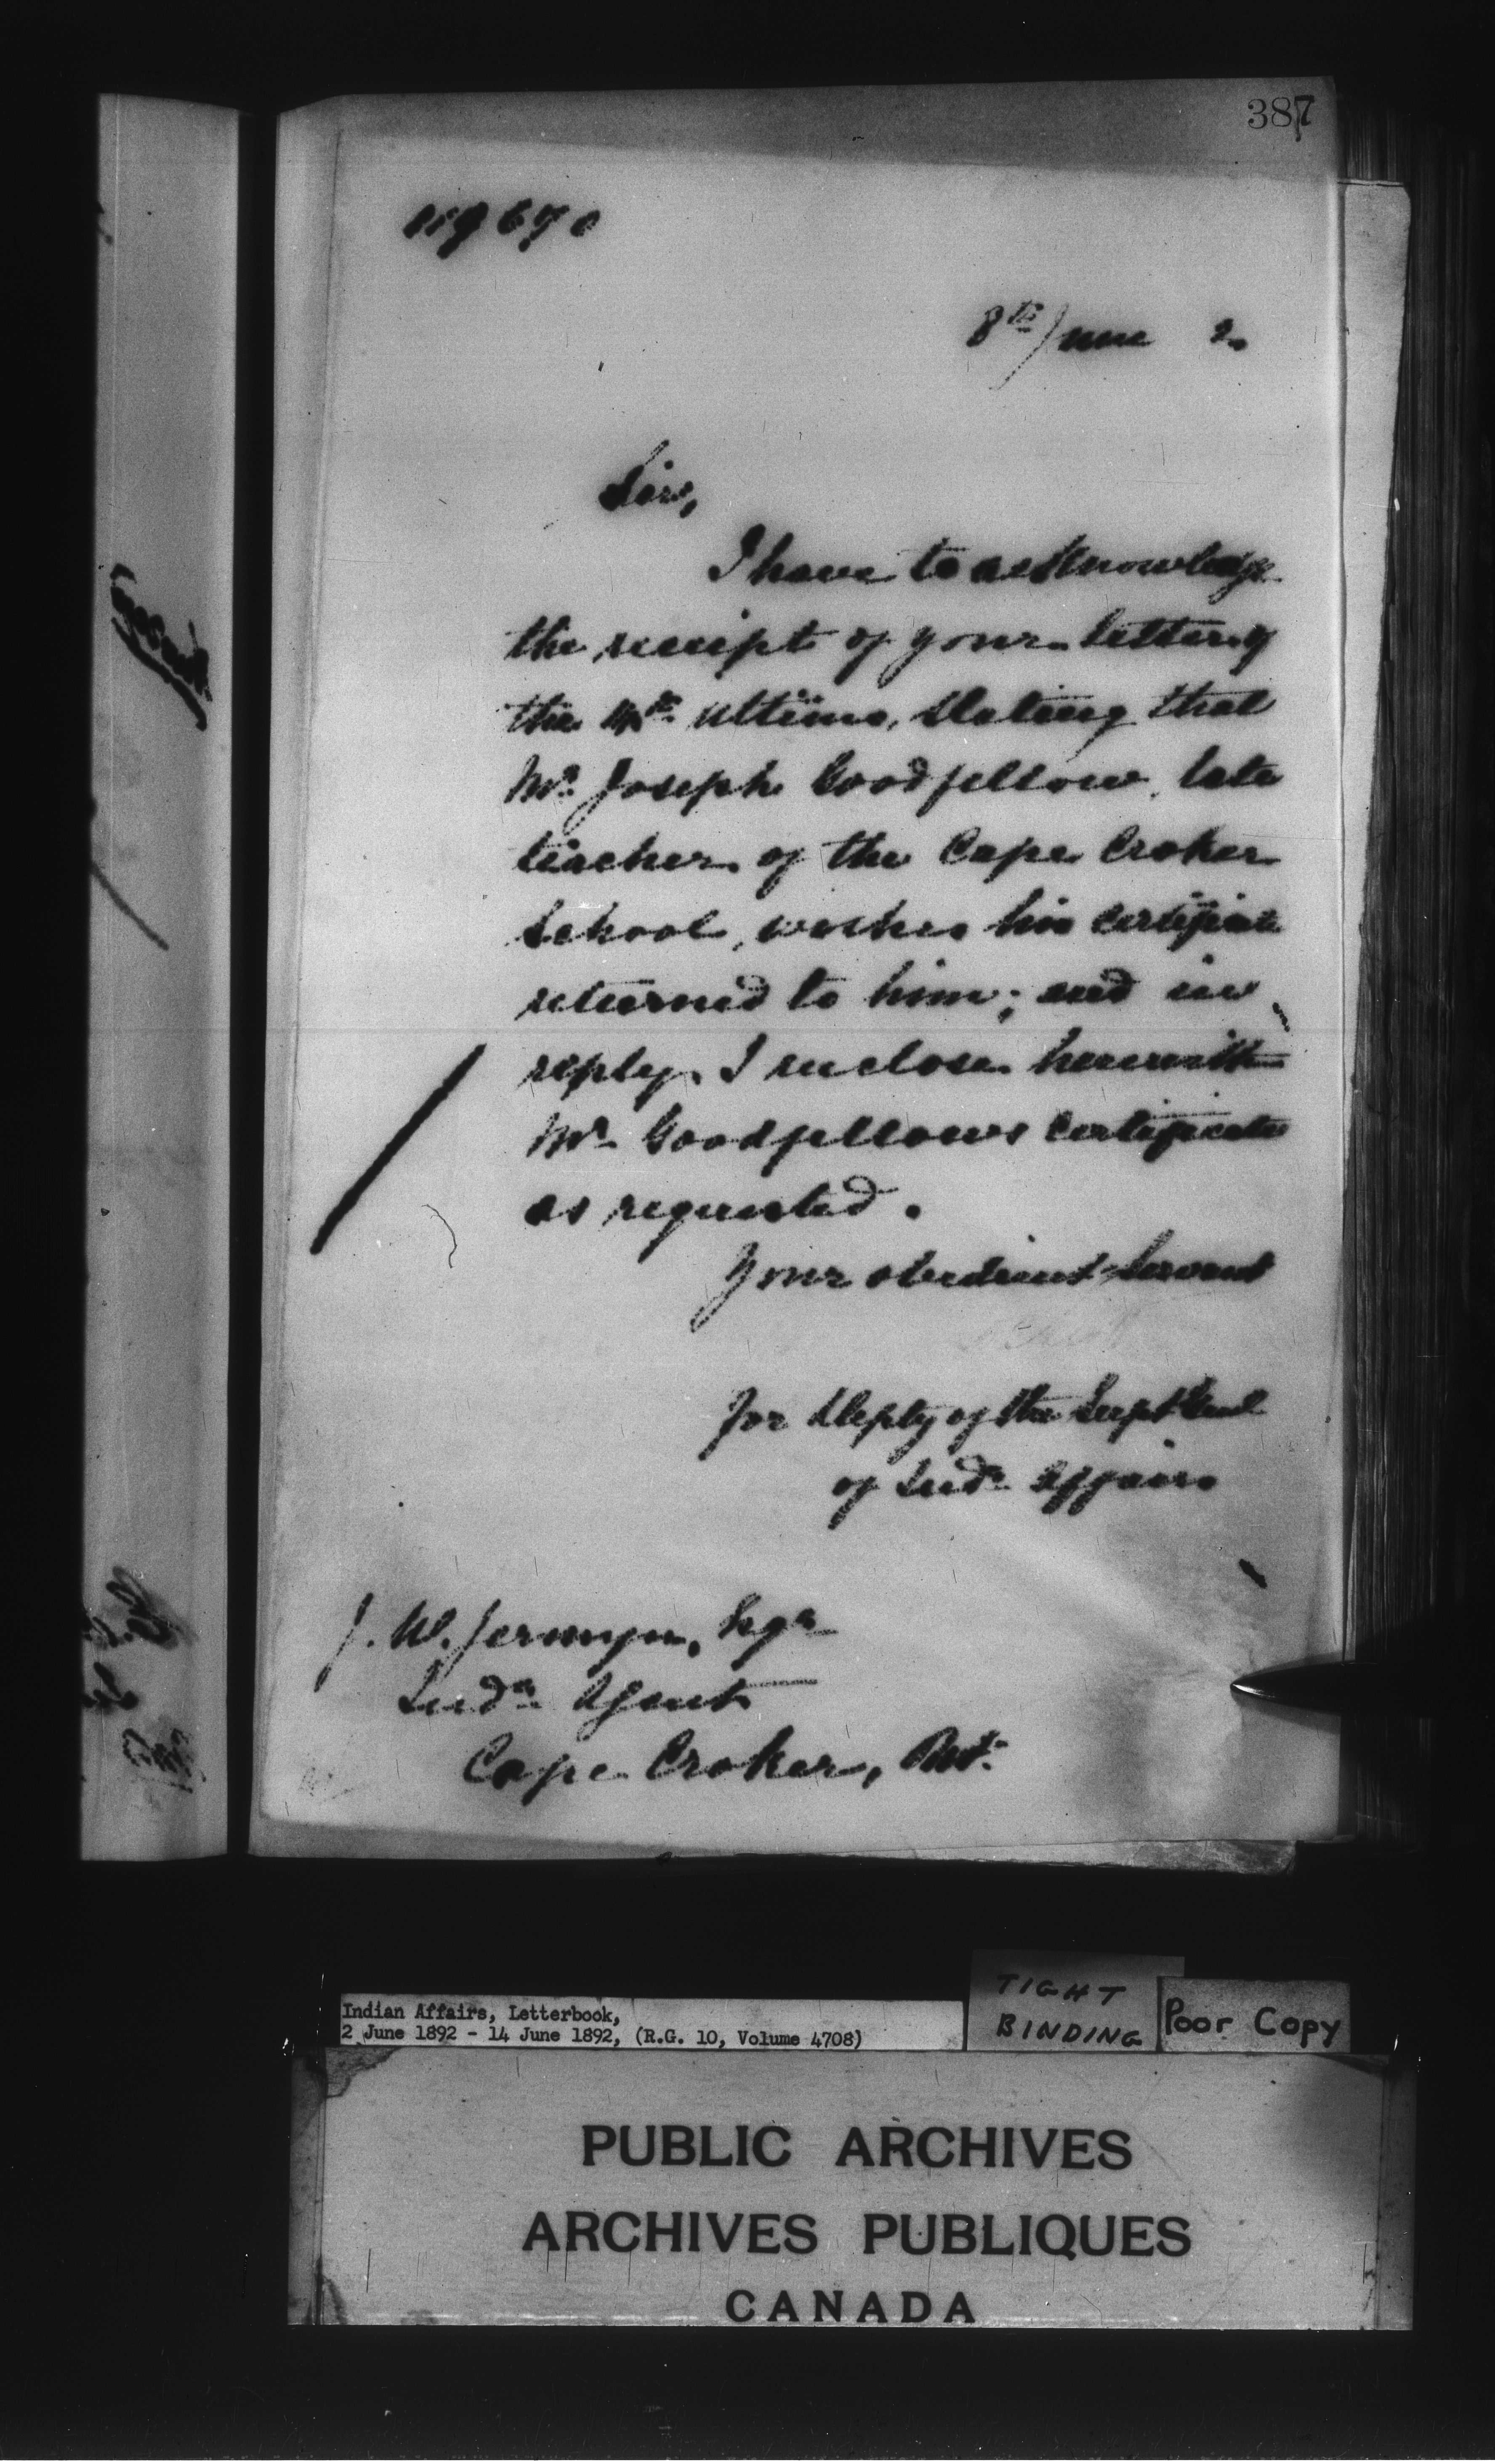 387
119670
8th June 2
Sir,
I have to acknowledge
the receipt of your letter of
the ultimo, stating that
Mr. Joseph Goodfellow, late
teacher of the Cape Croker
School, wishes his certificate
returned to him; and in
reply I enclose herewith
Mr. Goodfellows certificate
as requested.
Your obedient Servant
for Depty of the Supt Genl
of Indn Affairs
J. W. Jermyn, Esqr
Indn Agent
Cape Croker, Ont.
Indian Affairs, Letterbook,
2 June 1892 - 14 June 1892, (R.G. 10, Volume 4708)
TIGHT
BINDING
Poor Copy
PUBLIC ARCHIVES
ARCHIVES PUBLIQUES
CANADA